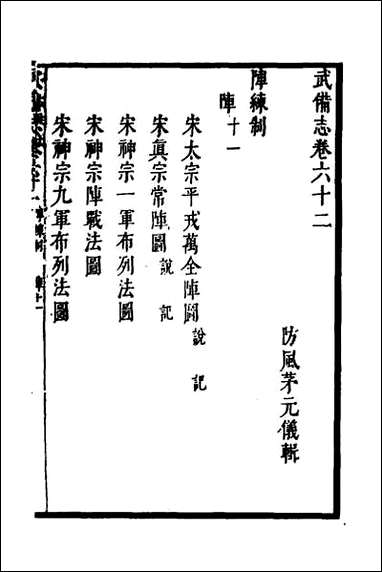 武備志卷六十二
防風茅元儀輯
陣練制
陣十一
宋太宗平戎萬全陣圖 說 記
宋真宗常陣圖 說 記
宋神宗一軍布列法圖
宋神宗陣戰法圖
宋神宗九軍布列法圖